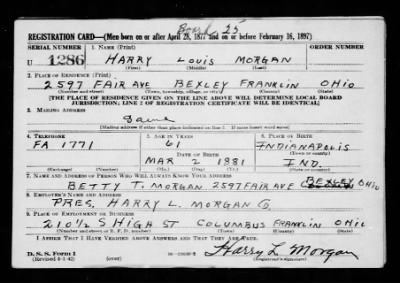 Board 25
REGISTRATION CARD—(Men born on or after April 28, 1877 and on or before February 16, 1897)
SERIAL NUMBER 1. NAME (Print) ORDER NUMBER
U 1286 HARRY LOUIS MORGAN
(First) (Middle) (Last)
2. PLACE OF RESIDENCE (Print)
2597 FAIR AVE BEXLEY FRANKLIN OHIO
(Number and street) (Town, township, village, or city) (County) (State)
[THE PLACE OF RESIDENCE GIVEN ON THE LINE ABOVE WILL DETERMINE LOCAL BOARD
JURISDICTION; LINE 2 OF REGISTRATION CERTIFICATE WILL BE IDENTICAL]
3. MAILING ADDRESS
Same
[Mailing address if other than place indicated on line 2. If same insert word same]
4. TELEPHONE 5. AGE IN YEARS 6. PLACE OF BIRTH
FA 1771 61 INDIANAPOLIS
DATE OF BIRTH (Town or county)
MAR 2 1881 IND.
(Exchange) (Number) (Mo.) (Day) (Yr.) (State or country)
7. NAME AND ADDRESS OF PERSON WHO WILL ALWAYS KNOW YOUR ADDRESS
BETTY T. MORGAN 2597 FAIR AVE BEXLEY OHIO
8. EMPLOYER'S NAME AND ADDRESS
PRES, HARRY L. MORGAN CO
9. PLACE OF EMPLOYMENT OR BUSINESS
210½ S HIGH ST COLUMBUS FRANKLIN OHIO
(Number and street or R. F. D. number) (Town) (County) (State)
I AFFIRM THAT I HAVE VERIFIED ABOVE ANSWERS AND THAT THEY ARE TRUE.
D. S. S. Form 1
(Revised 4-1-42) (over) Harry L Morgan
(Registrant's signature)